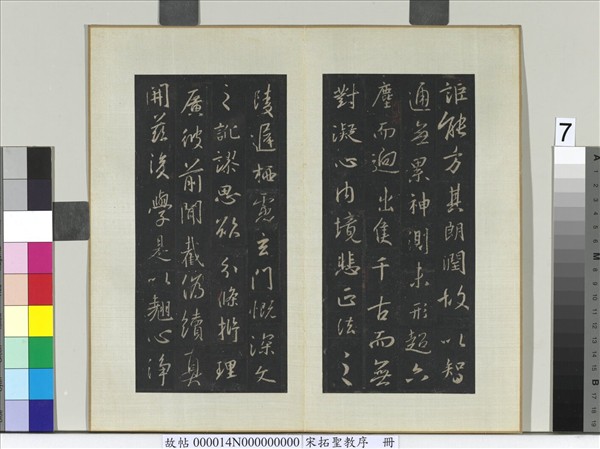 詎能方其朗潤故以智
通無累神測未形超六
塵而迥出隻千古而無
對凝心內境悲正法之
陵遲栖慮玄門慨深文
之訛謬思欲分條析理
廣彼前聞截偽續真
開茲後學是以翹心淨
7
A
M
B
故帖 000014N000000000 宋拓聖教序 冊